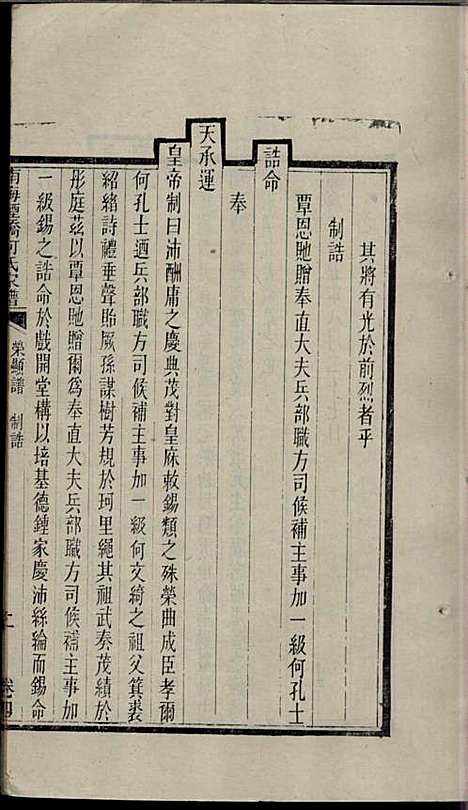 其將有光於前烈者乎
制誥
覃恩貤贈奉直大夫兵部職方司候補主事加一級何孔士
誥命
奉
天承運
皇帝制曰沛酬庸之慶典茂對皇庥敕錫類之殊榮曲成臣孝爾
何孔士迺兵部職方司候補主事加一級何文綺之祖父箕裘
紹緒詩禮垂聲貽厥孫謀樹芳規於珂里繩其祖武奏茂績於
彤庭茲以覃恩貤贈爾爲奉直大夫兵部職方司候補主事加
一級錫之誥命於戲開堂構以培基德鍾家慶沛絲綸而錫命
南海煙橋何氏家譜
榮顯譜 制誥
卷四